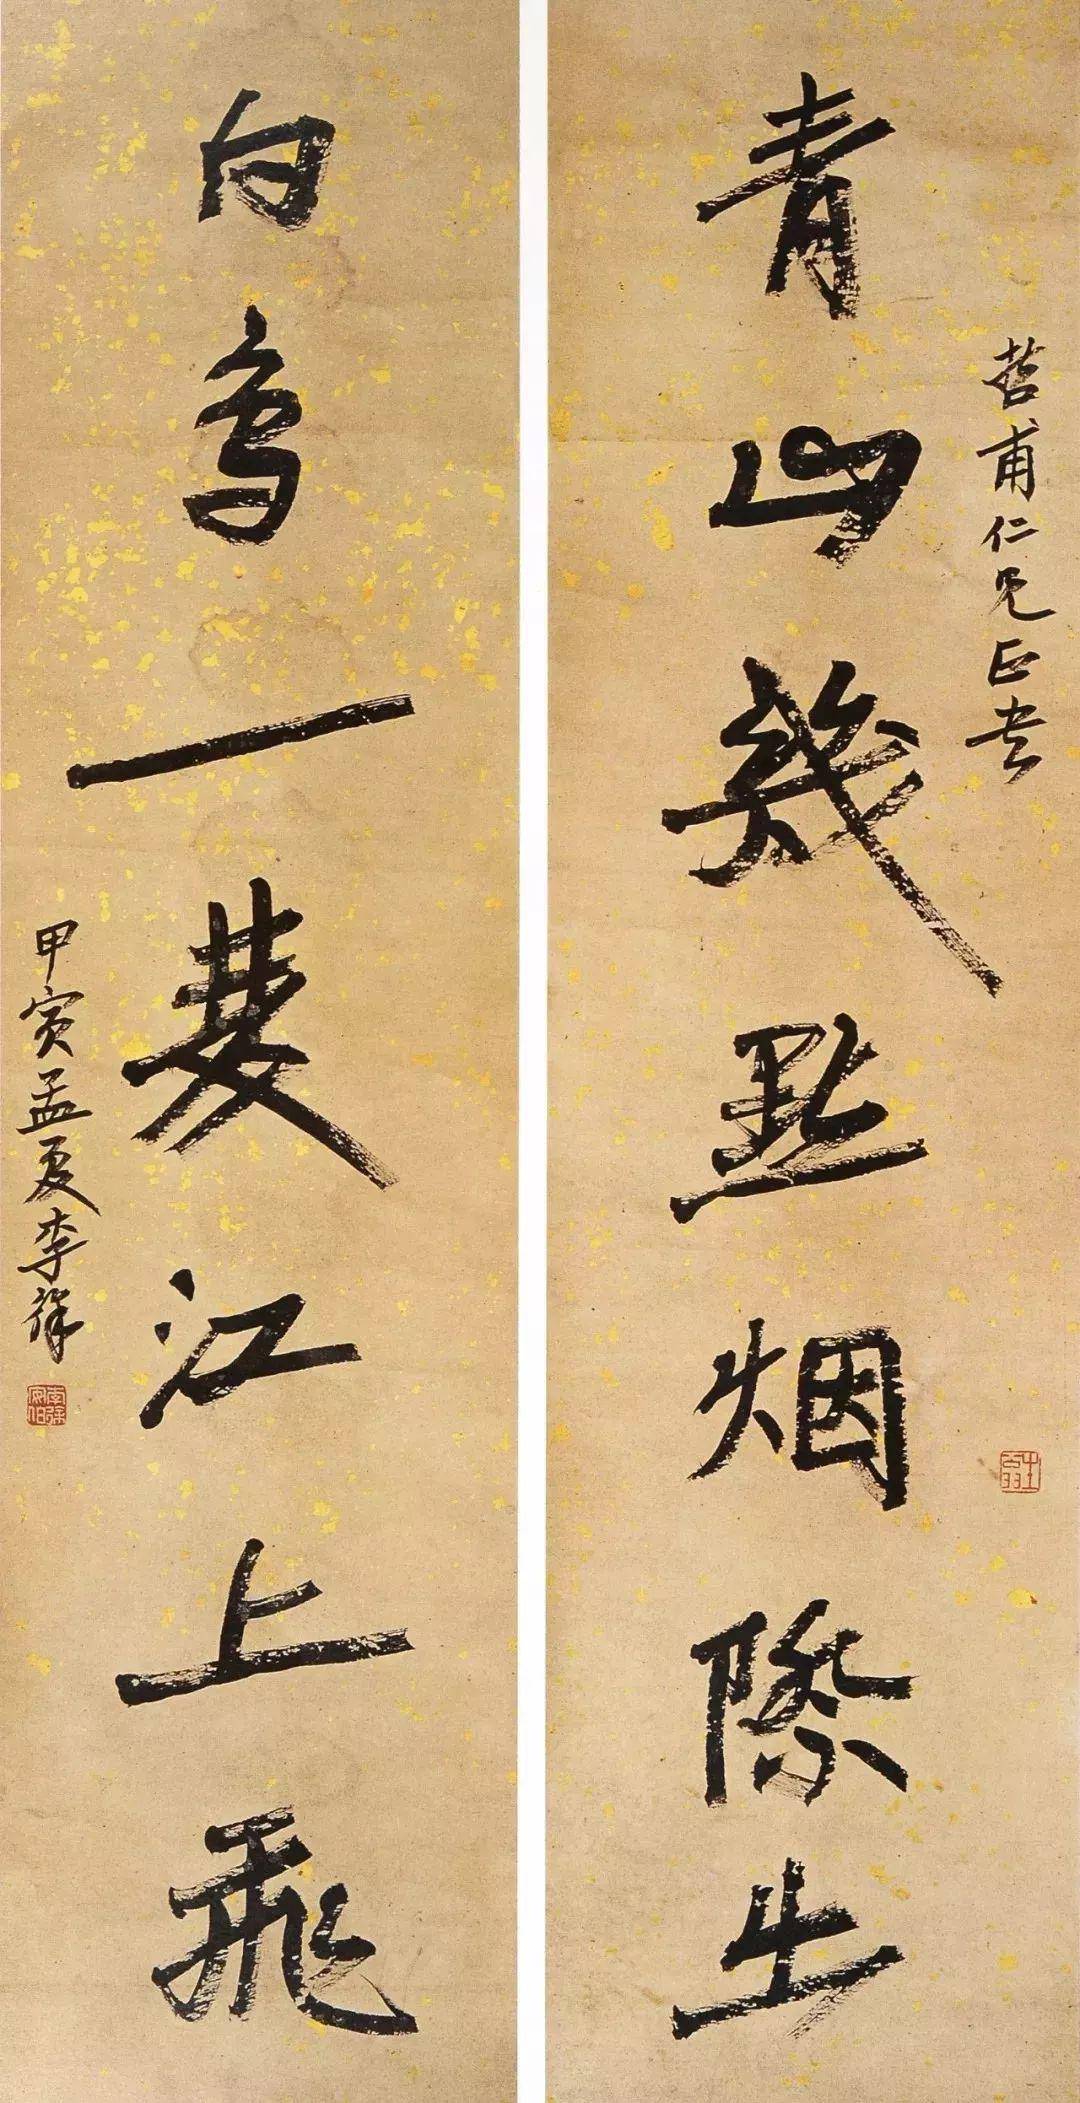 哲甫仁兄正
青山幾點烟際出
白鳥一雙江上飛
甲寅孟夏李祥